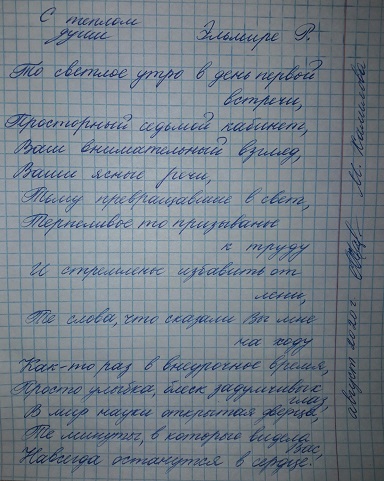 С теплом
души Эльмире Р.
То светлое утро в день первой
встречи,
Просторный седьмой кабинет,
Ваш внимательный взгляд,
Ваши ясные речи,
Тьму превращавшие в свет,
Терпеливое то призыванье
к труду
И стремленье избавить от
лени,
Те слова, что сказали Вы мне
на ходу
Как-то раз в внеурочное время,
Просто улыбка, блеск задумчивых
глаз,
В мир науки открытая дверца,
Те минуты, в которые видела
Вас,
Навсегда останутся в сердце!
август 2020 г. М.